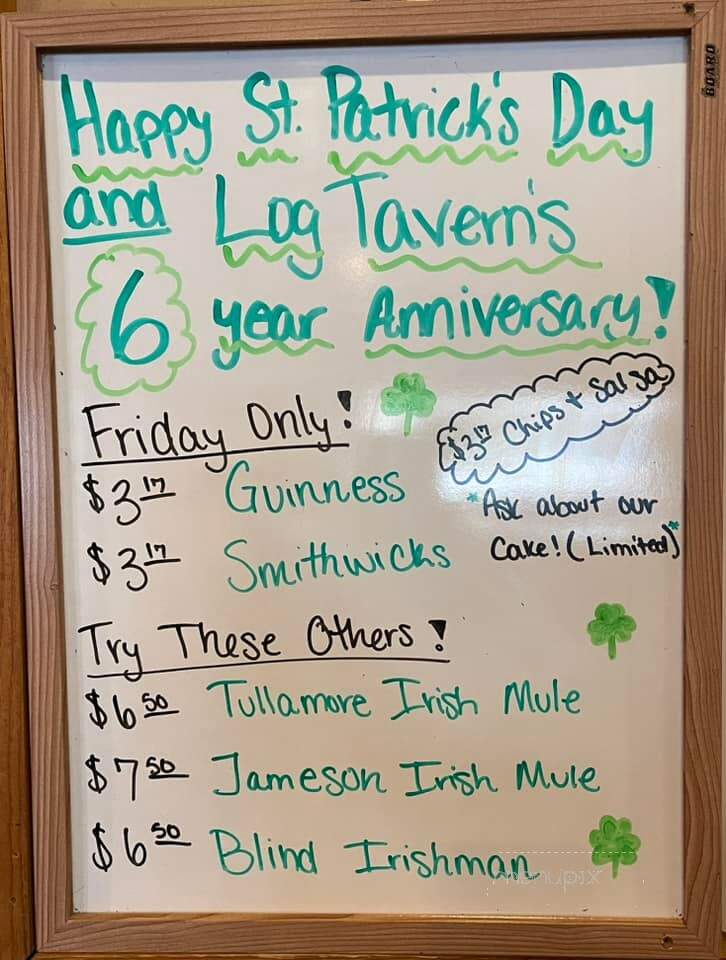 BOARD
Happy St. Patrick's Day
and Log Tavern's
6 year Anniversary!
Friday Only!
$3.17 Chips + Salsa
$3.17 Guinness
*Ask about our
Cake! (Limited)*
$3.17 Smithwicks
Try These Others!
$6.50 Tullamore Irish Mule
$7.50 Jameson Irish Mule
$6.50 Blind Irishman
menupix